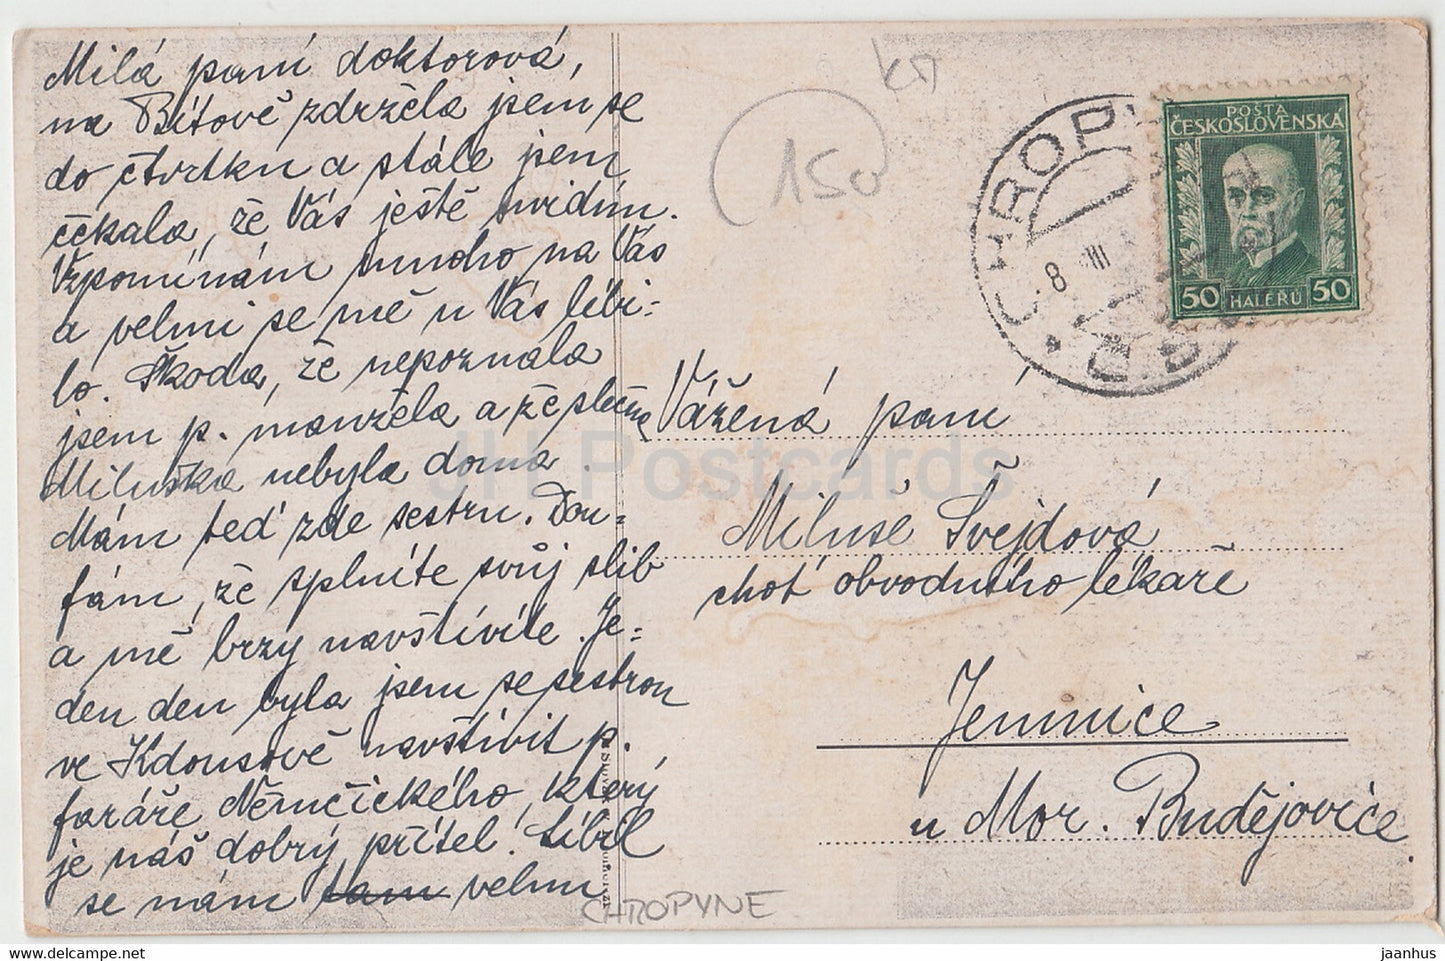 Milá paní doktorová,
na Bítově zdržela jsem se
do čtvrtku a stále jsem
čekala, že Vás ještě uvidím.
Vzpomínám mnoho na Vás
a velmi se mě u Vás líbi=
lo. Škoda, že nepoznala
jsem p. manžela a že slečna
Miluška nebyla doma.
Mám teď zde sestru. Dou=
fám, že splníte svůj slib
a mě brzy navštívíte. Je=
den den byla jsem se sestrou
ve Kdousově navštívit p.
faráře Němčického, který
je náš dobrý přítel. Líbil
se nám tam velmi
150
CHROPYNĚ
8 III
POŠTA
ČESKOSLOVENSKÁ
50 HALÉŘŮ 50
Vážená paní
Miluše Švejdová
choť obvodního lékaře
Jemnice
u Mor. Budějovice.
CHROPYNE
JH Postcards
jaanhus